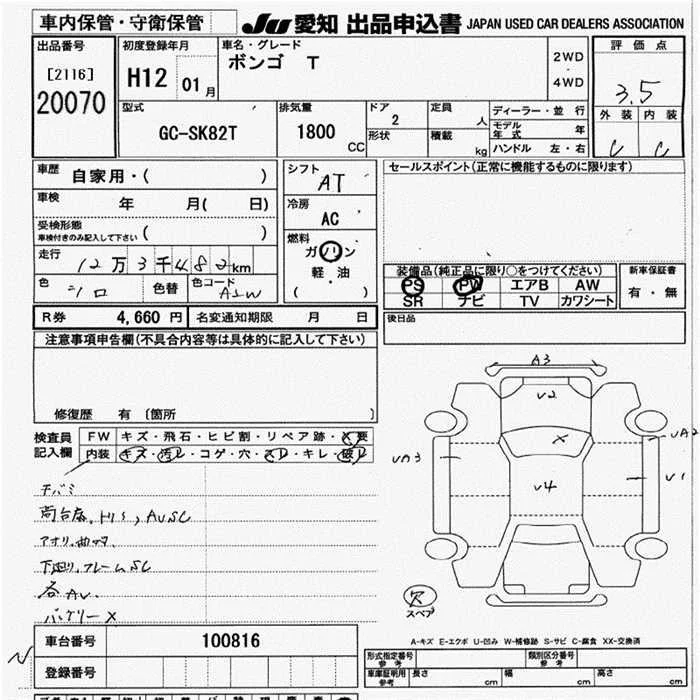 車内保管・守衛保管
JU 愛知 出品申込書 JAPAN USED CAR DEALERS ASSOCIATION
出品番号
[2116]
20070
初度登録年月
H12 01月
車名・グレード
ボンゴ T
2WD
・
4WD
評価点
3.5
外装 内装
C C
型式
GC-SK82T
排気量
1800 CC
ドア
2
形状
定員
人
積載
kg
ディーラー・並行
モデル年式 年
ハンドル 左・右
車歴
自家用・( )
車検
年 月( 日)
受検形態
車検付きのみ記入して下さい ( )
走行
12万3千482km
色
シロ
色替
色コード
A5W
シフト
AT
冷房
AC
燃料
ガソリン
軽・油
( )
セールスポイント(正常に機能するものに限ります)
装備品(純正品に限り○をつけてください)
PS PW エアB AW
SR ナビ TV カワシート
新車保証書
有・無
後日品
R券 4,660 円 名変通知期限 月 日
注意事項申告欄(不具合内容等は具体的に記入して下さい)
修復歴 有 [箇所 ]
検査員
記入欄
FW キズ・飛石・ヒビ割・リペア跡・X要
内装 キズ・汚レ・コゲ・穴・スレ・キレ・破レ
下廻り,フレームSC
各AU.
バッテリーX
A3
U2
X
UA3
UA2
U1
U4
欠
スペア
A-キズ E-エクボ U-凹み W-補修跡 S-サビ C-腐食 XX-交換済
車台番号 100816
登録番号
形式指定番号
参考
類別区分番号
参考
車庫証明用
参考
長さ 幅 高さ
cm cm cm